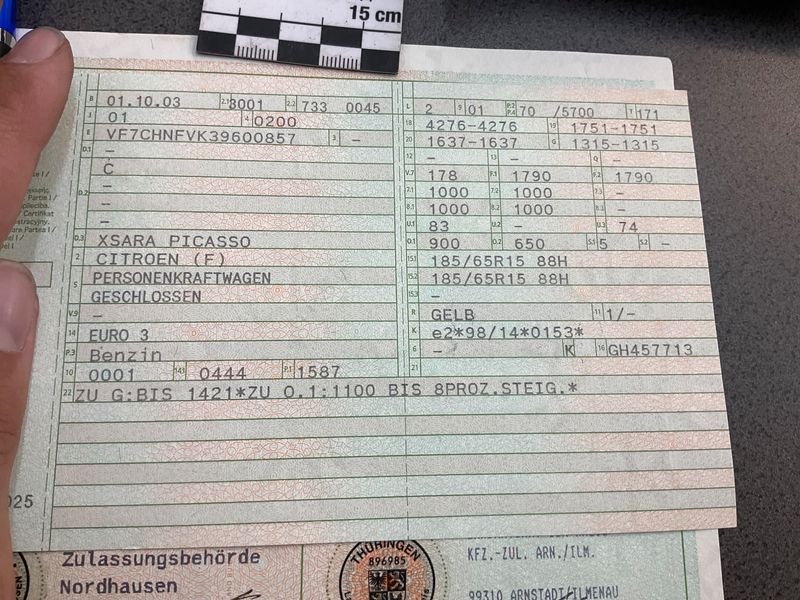 15 cm
B 01.10.03 2.1 3001 2.2 733 0045 L 2 9 01 P.2 P.4 70 /5700 T 171
J 01 4 0200 18 4276-4276 19 1751-1751
E VF7CHNFVK39600857 3 – 20 1637-1637 G 1315-1315
D.1 – 12 – 13 – Q –
C V.7 178 F.1 1790 F.2 1790
D.2 – 7.1 1000 7.2 1000 7.3 –
– 8.1 1000 8.2 1000 8.3 –
– U.1 83 U.2 – U.3 74
D.3 XSARA PICASSO O.1 900 O.2 650 S.1 5 S.2 –
2 CITROEN (F) 15.1 185/65R15 88H
5 PERSONENKRAFTWAGEN 15.2 185/65R15 88H
GESCHLOSSEN 15.3 –
V.9 – R GELB 11 1/–
14 EURO 3 K e2*98/14*0153*
P.3 Benzin 6 – K 16 GH457713
10 0001 14.1 0444 P.1 1587 21
22 ZU G:BIS 1421*ZU O.1:1100 BIS 8PROZ.STEIG.*
025
Zulassungsbehörde
Nordhausen
THÜRINGEN
896985
KFZ.-ZUL. ARN./ILM.
99310 ARNSTADT/ILMENAU